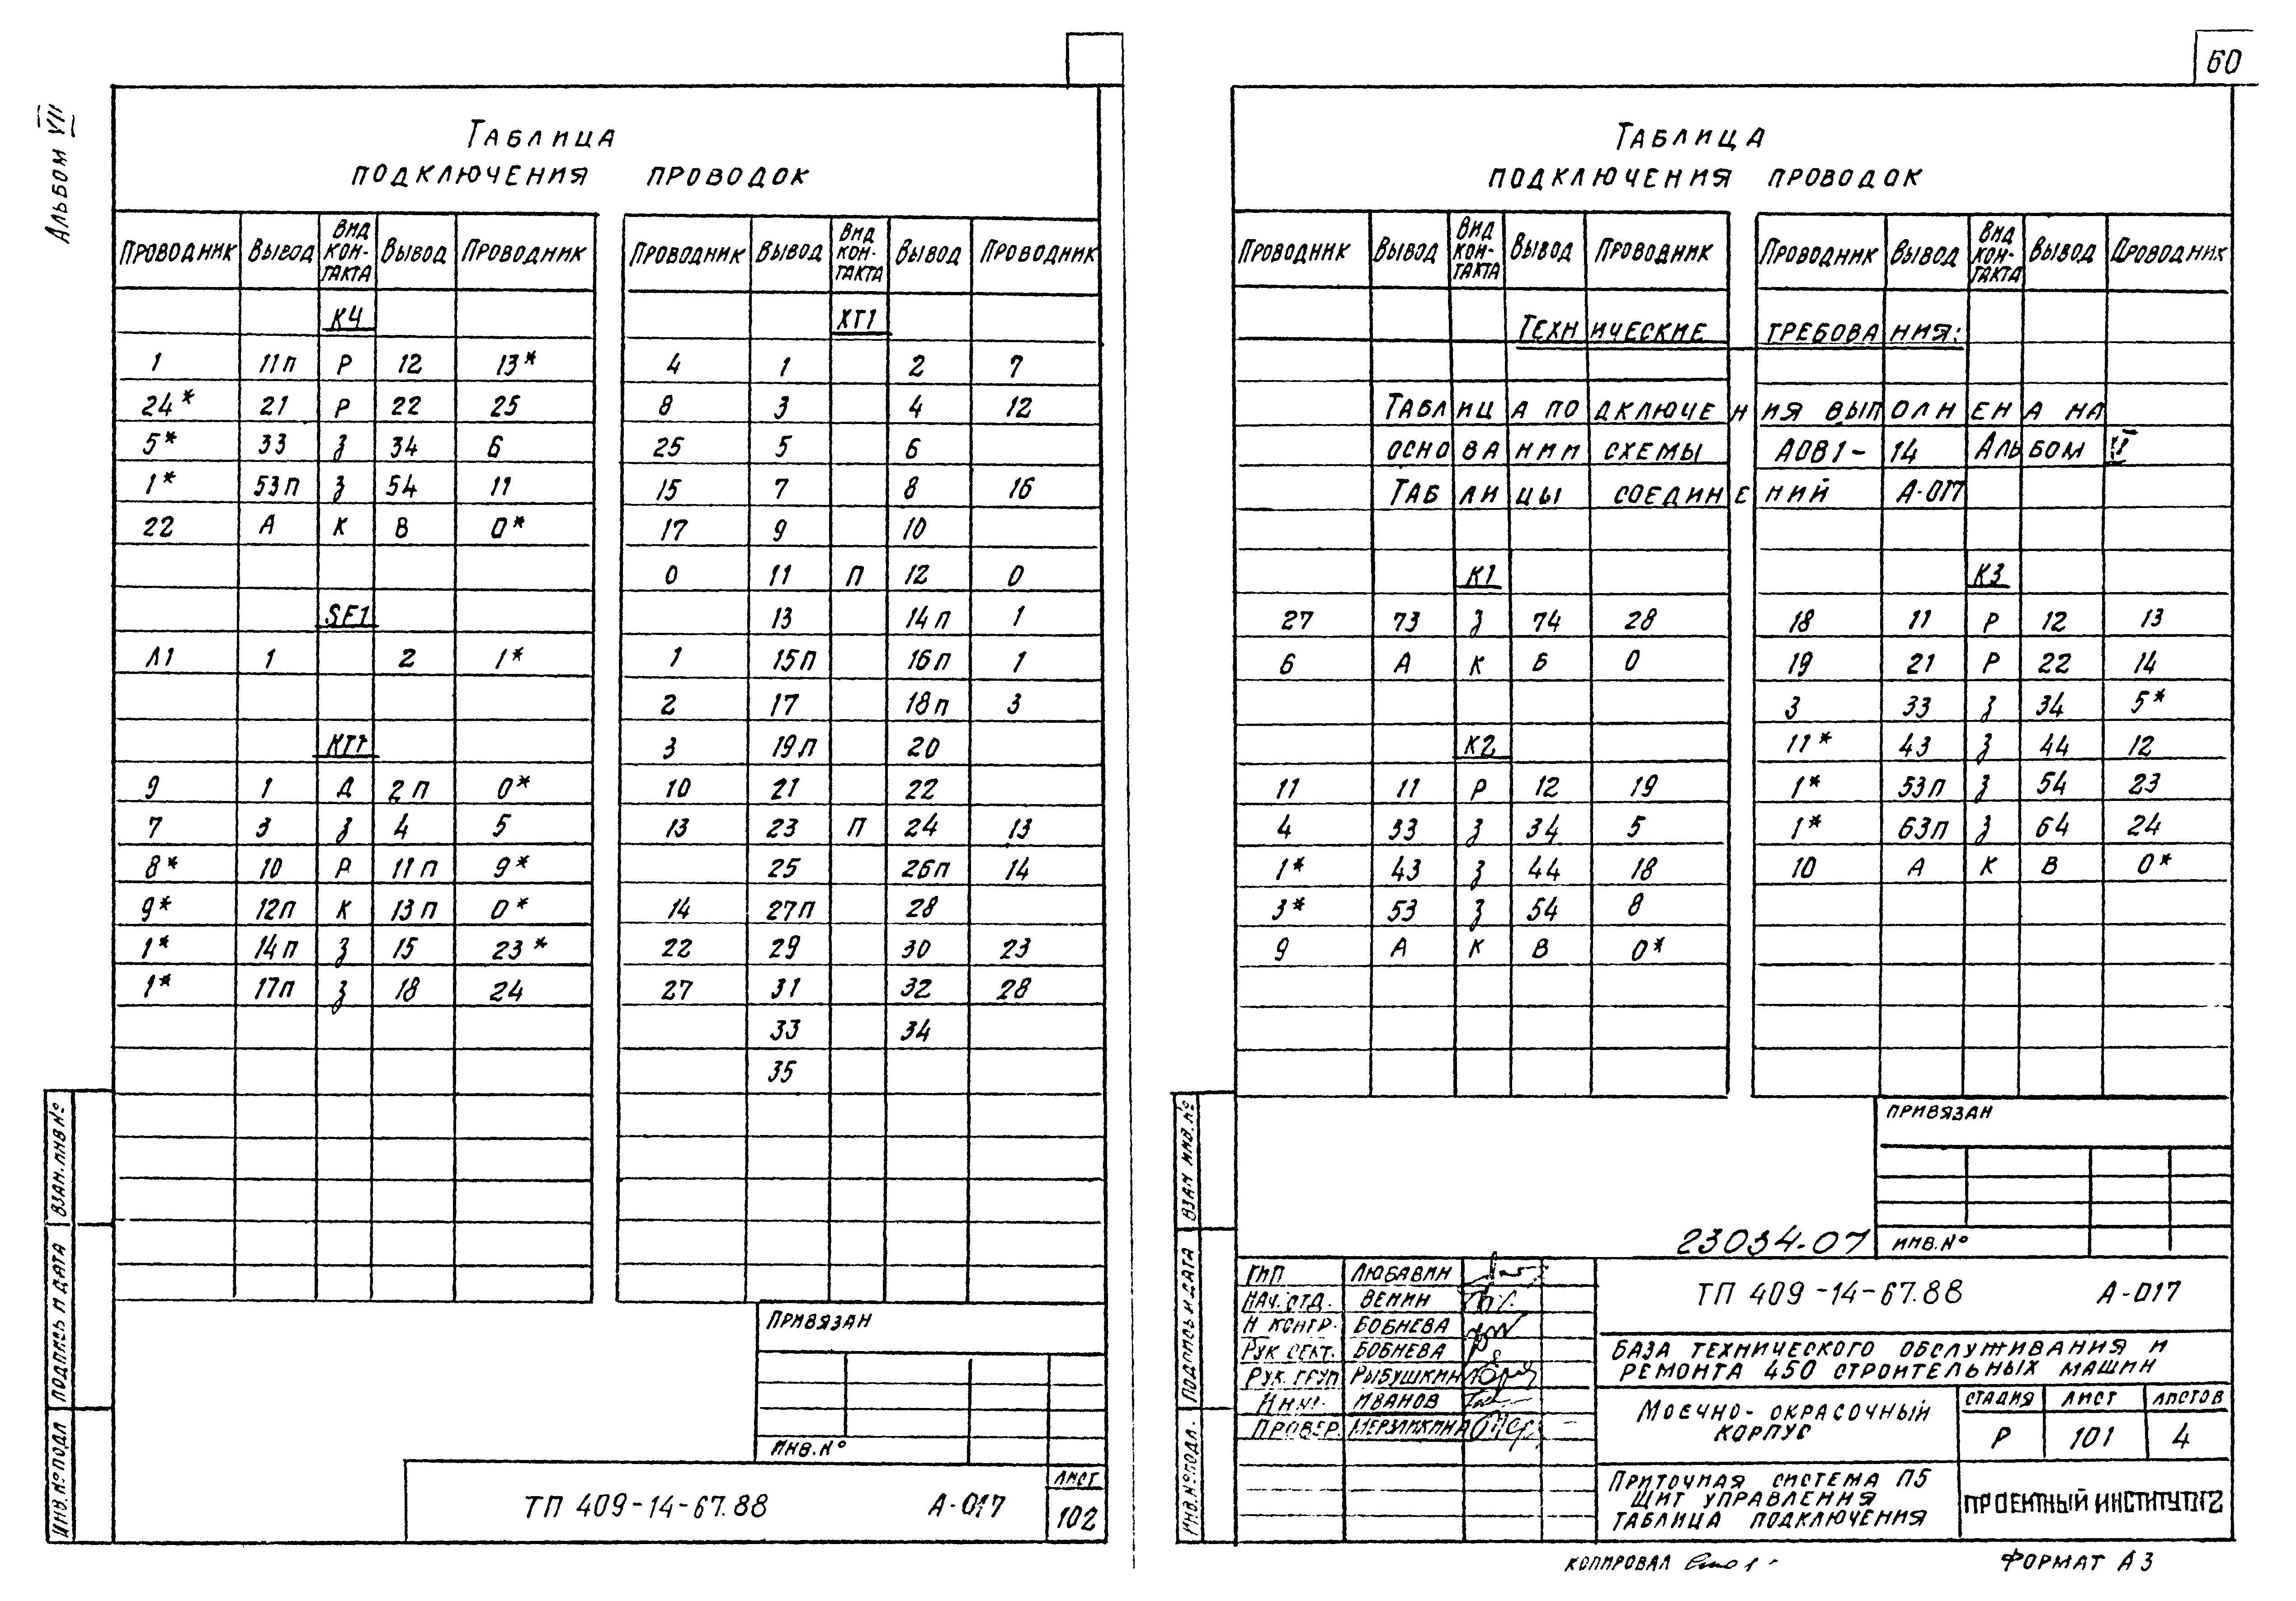 60
Альбом VII
Таблица
подключения проводок
Проводник Вывод Вид контакта Вывод Проводник
К4
1 11п Р 12 13*
24* 21 Р 22 25
5* 33 З 34 6
1* 53п З 54 11
22 А К В 0*
SF1
Л1 1 2 1*
КТ1
9 1 Д 2п 0*
7 3 З 4 5
8* 10 Р 11п 9*
9* 12п К 13п 0*
1* 14п З 15 23*
1* 17п З 18 24
Проводник Вывод Вид кон-такта Вывод Проводник
ХТ1
4 1 2 7
8 3 4 12
25 5 6
15 7 8 16
17 9 10
0 11 П 12 0
13 14п 1
1 15п 16п 1
2 17 18п 3
3 19п 20
10 21 22
13 23 П 24 13
25 26п 14
14 27п 28
22 29 30 23
27 31 32 28
33 34
35
Привязан
Инв.№
ТП 409-14-67.88 А-017
Лист
102
Инв.№подл Подпись и дата Взам.инв№
Таблица
подключения проводок
Проводник Вывод Вид кон-такта Вывод Проводник
Проводник Вывод Вид кон-такта Вывод Проводник
Технические требования:
Таблица подключения выполнена на
основании схемы АОВ1-14 Альбом
Таблицы соединений А-017
К1
27 73 З 74 28
6 А К Б 0
К2
11 11 Р 12 19
4 33 З 34 5
1* 43 З 44 18
3* 53 З 54 8
9 А К В 0*
К3
18 11 Р 12 13
19 21 Р 22 14
3 33 З 34 5*
11* 43 З 44 12
1* 53п З 54 23
1* 63п З 64 24
10 А К В 0*
Привязан
Инв.№
23034-07
ГИП Любавин
Нач.отд. Венин
Н контр. Бобнева
Рук сект. Бобнева
Рук. груп Рыбушкин
Инж. Иванов
Провер.
ТП 409-14-67.88 А-017
База технического обслуживания и
ремонта 450 строительных машин
Моечно-окрасочный
корпус
Стадия Лист Листов
Р 101 4
Приточная система П5
Щит управления
Таблица подключения
Проектный институт №2
Инв.№подл. Подпись и дата Взам инв.№
Копировал
Формат А3